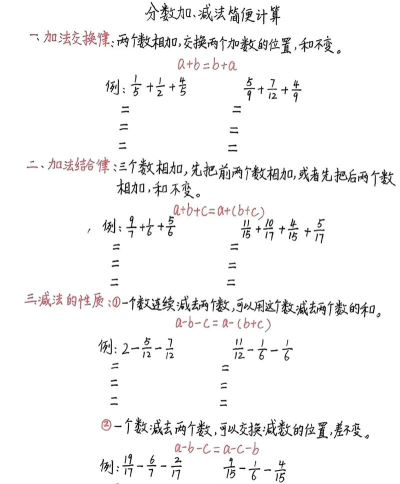 分数加、减法简便计算
一、加法交换律:两个数相加,交换两个加数的位置,和不变。
a+b=b+a
例: 1/5+1/2+4/5 5/9+7/12+4/9
= =
= =
= =
二、加法结合律:三个数相加,先把前两个数相加,或者先把后两个数
相加,和不变。
a+b+c=a+(b+c)
例: 9/7+1/6+5/6 11/15+10/17+4/15+5/17
= =
= =
= =
三、减法的性质:①一个数连续减去两个数,可以用这个数减去两个数的和。
a-b-c=a-(b+c)
例: 2-5/12-7/12 11/12-1/6-1/6
= =
= =
= =
②一个数减去两个数,可以交换减数的位置,差不变。
a-b-c=a-c-b
例: 19/17-6/7-2/17 9/15-1/6-4/15